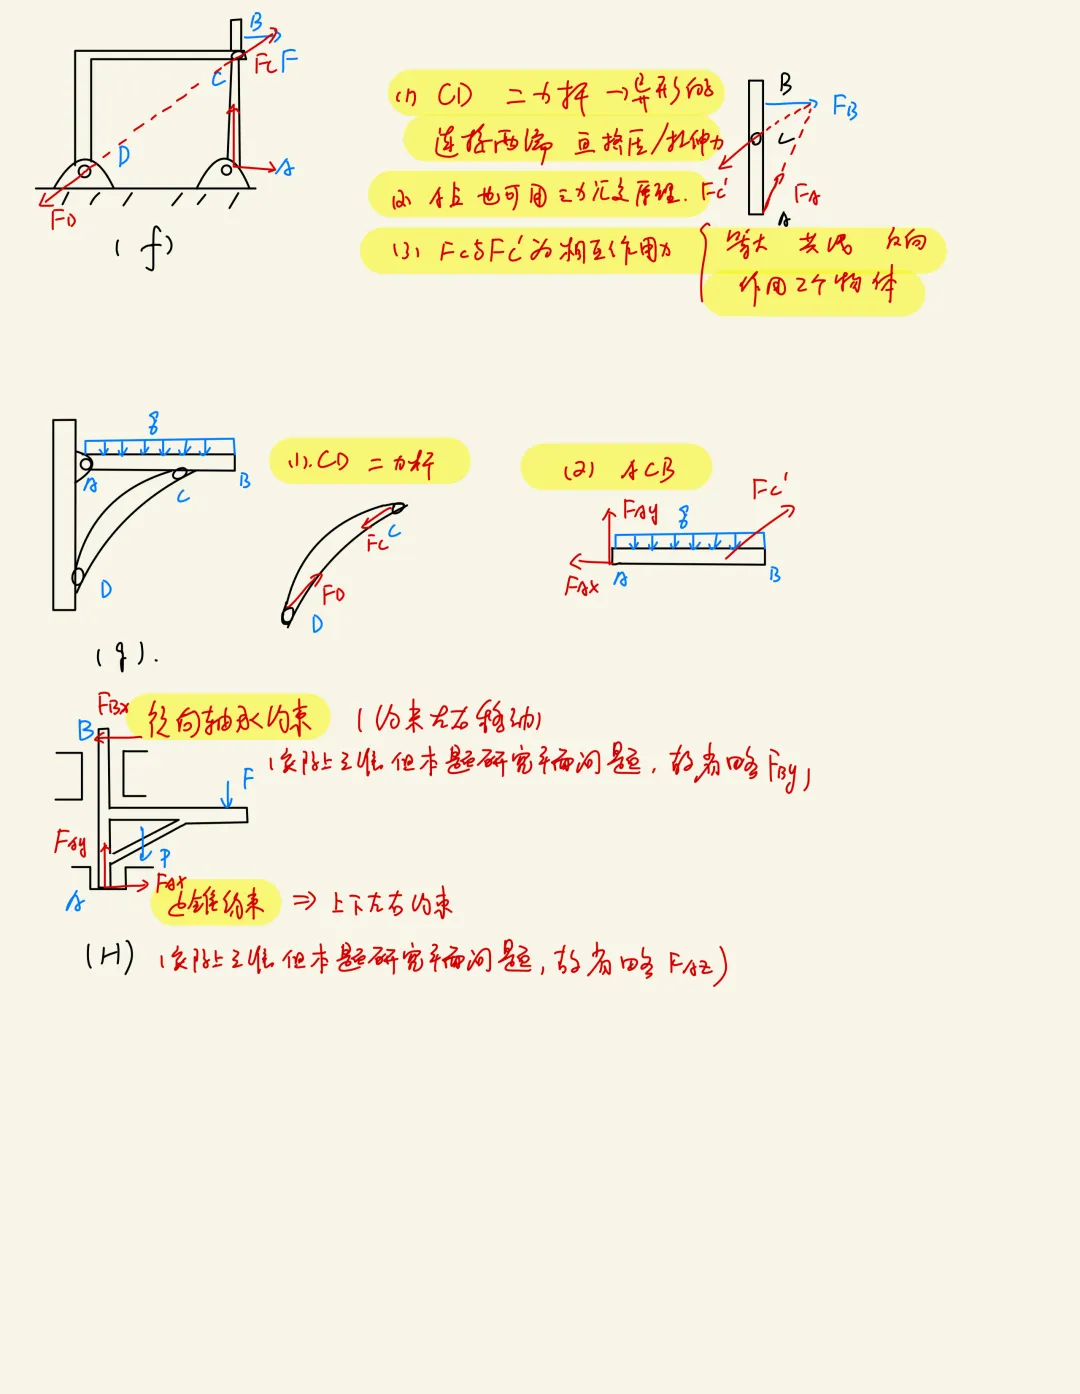 B
Fc F
C
D
A
FD
(f)
(1) CD 二力杆→异形的
连接两端 直接压/拉伸力
(2) A点也可用三力汇交原理.
(3) Fc与Fc'为相互作用力 { 等大 共线 反向
作用2个物体
B
FB
C
Fc'
FA
A
q
A
C
B
D
(g).
(1).CD 二力杆
C
Fc
FD
D
(2) ACB
FAy
q
Fc'
FAx
A
B
FBx
B
径向轴承约束 (约束左右移动)
(实际上三维但本题研究平面问题,故省略FBy)
F
FAy
P
FAx
A
止推约束 ⇒ 上下左右约束
(H) (实际上三维但本题研究平面问题,故省略FAz)